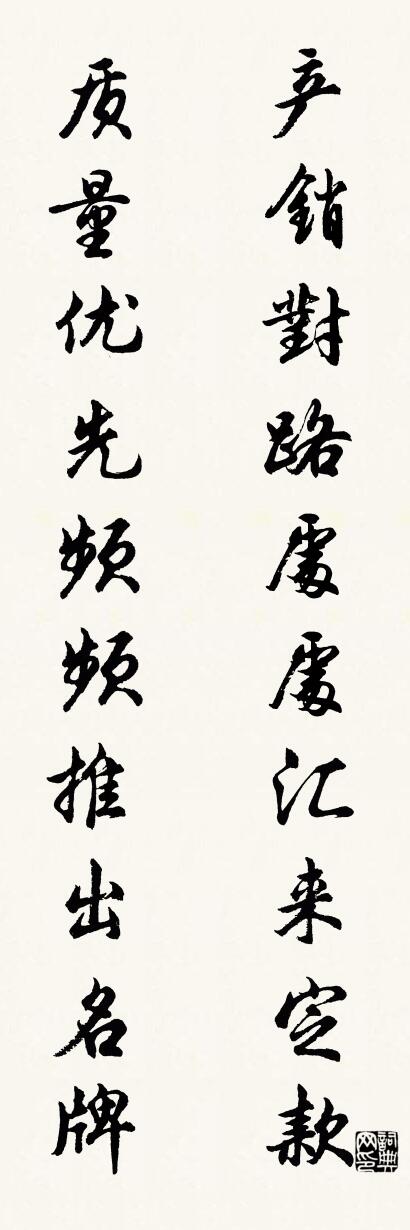 产銷對路處處汇来定款
质量优先频频推出名牌
詞典网印